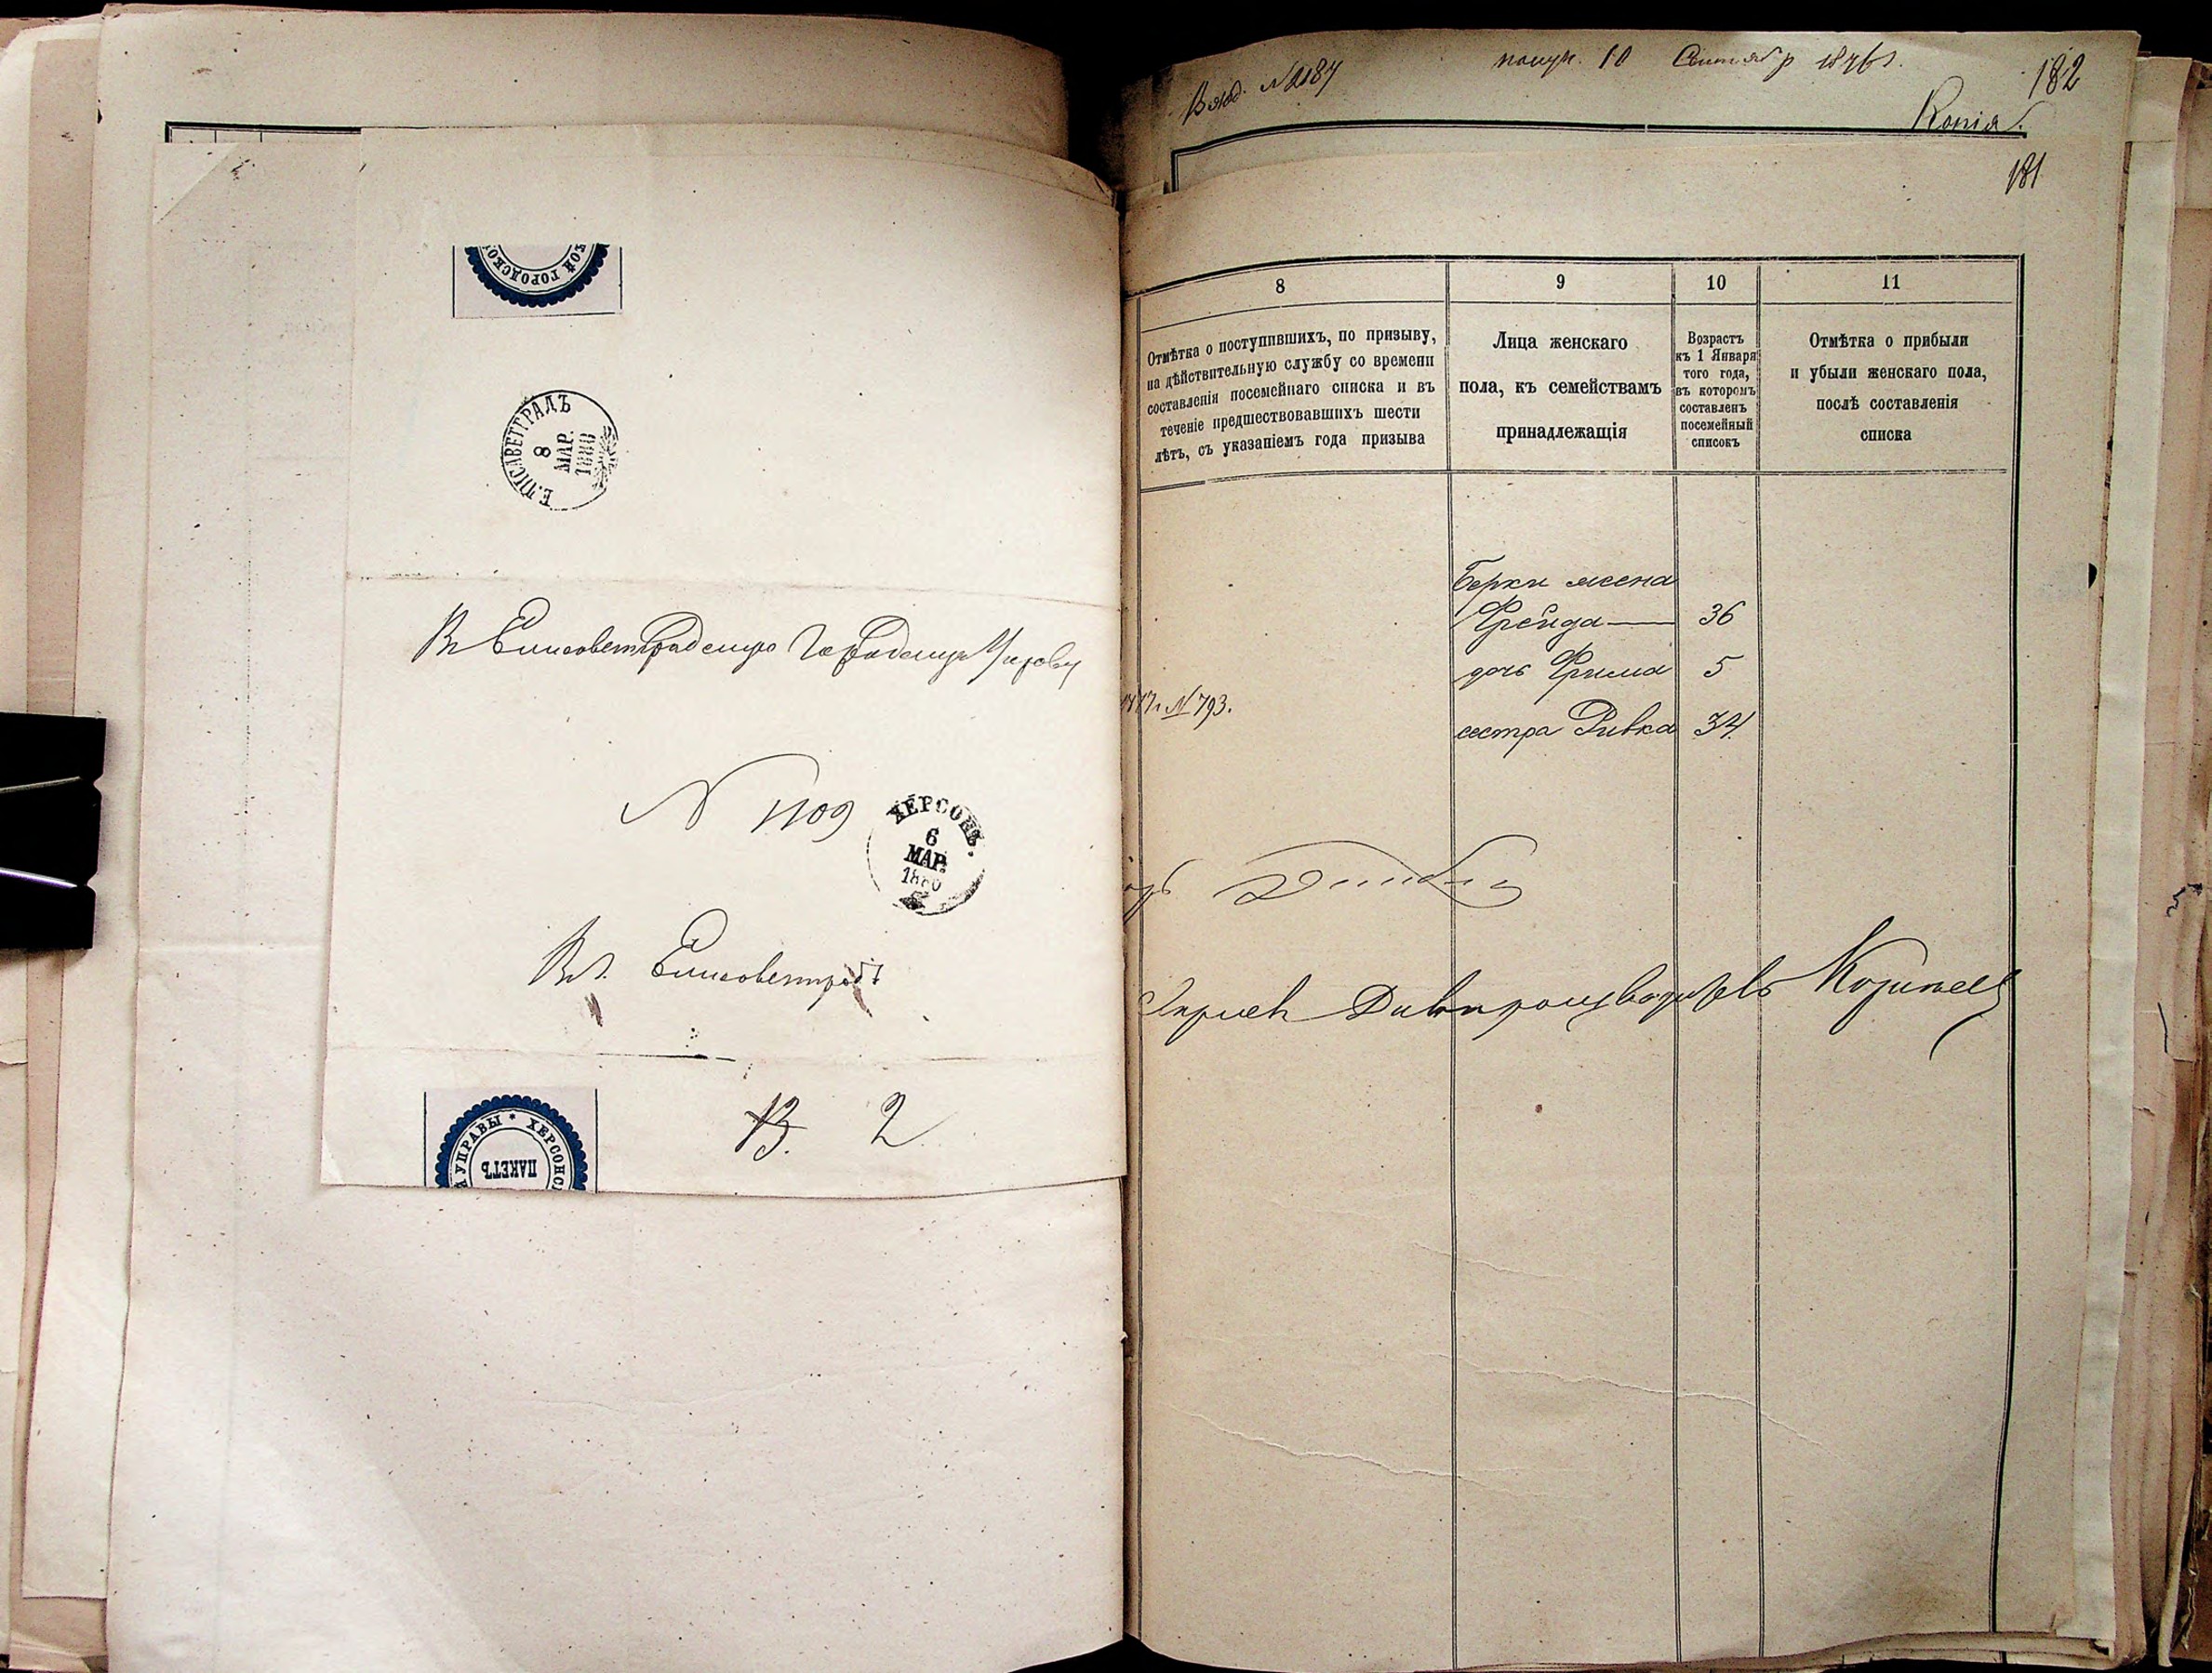 КОЙ ГОРОДСКО
ЕЛИСАВЕТГРАДЪ
8
МАР.
1880
Въ Елисаветградскую Городскую Управу
N 1109
ХЕРСОНЪ.
6
МАР.
1880
Въ Елисаветградъ
УПРАВЫ * ХЕРСОНС
ПАКЕТЪ
13. 2
Вход. N 2187 получ. 10 Сентябр 1876 г.
182
Копія.
181
8
Отмѣтка о поступившихъ, по призыву,
на дѣйствительную службу со времени
составленія посемейнаго списка и въ
теченіе предшествовавшихъ шести
лѣтъ, съ указаніемъ года призыва
9
Лица женскаго
пола, къ семействамъ
принадлежащія
10
Возрастъ
къ 1 Января
того года,
въ которомъ
составленъ
посемейный
списокъ
11
Отмѣтка о прибыли
и убыли женскаго пола,
послѣ составленія
списка
Берки жена
Фрейда — 36
дочь Фрима 5
N 793.
сестра Ривка 34
Дѣлопроизводитель